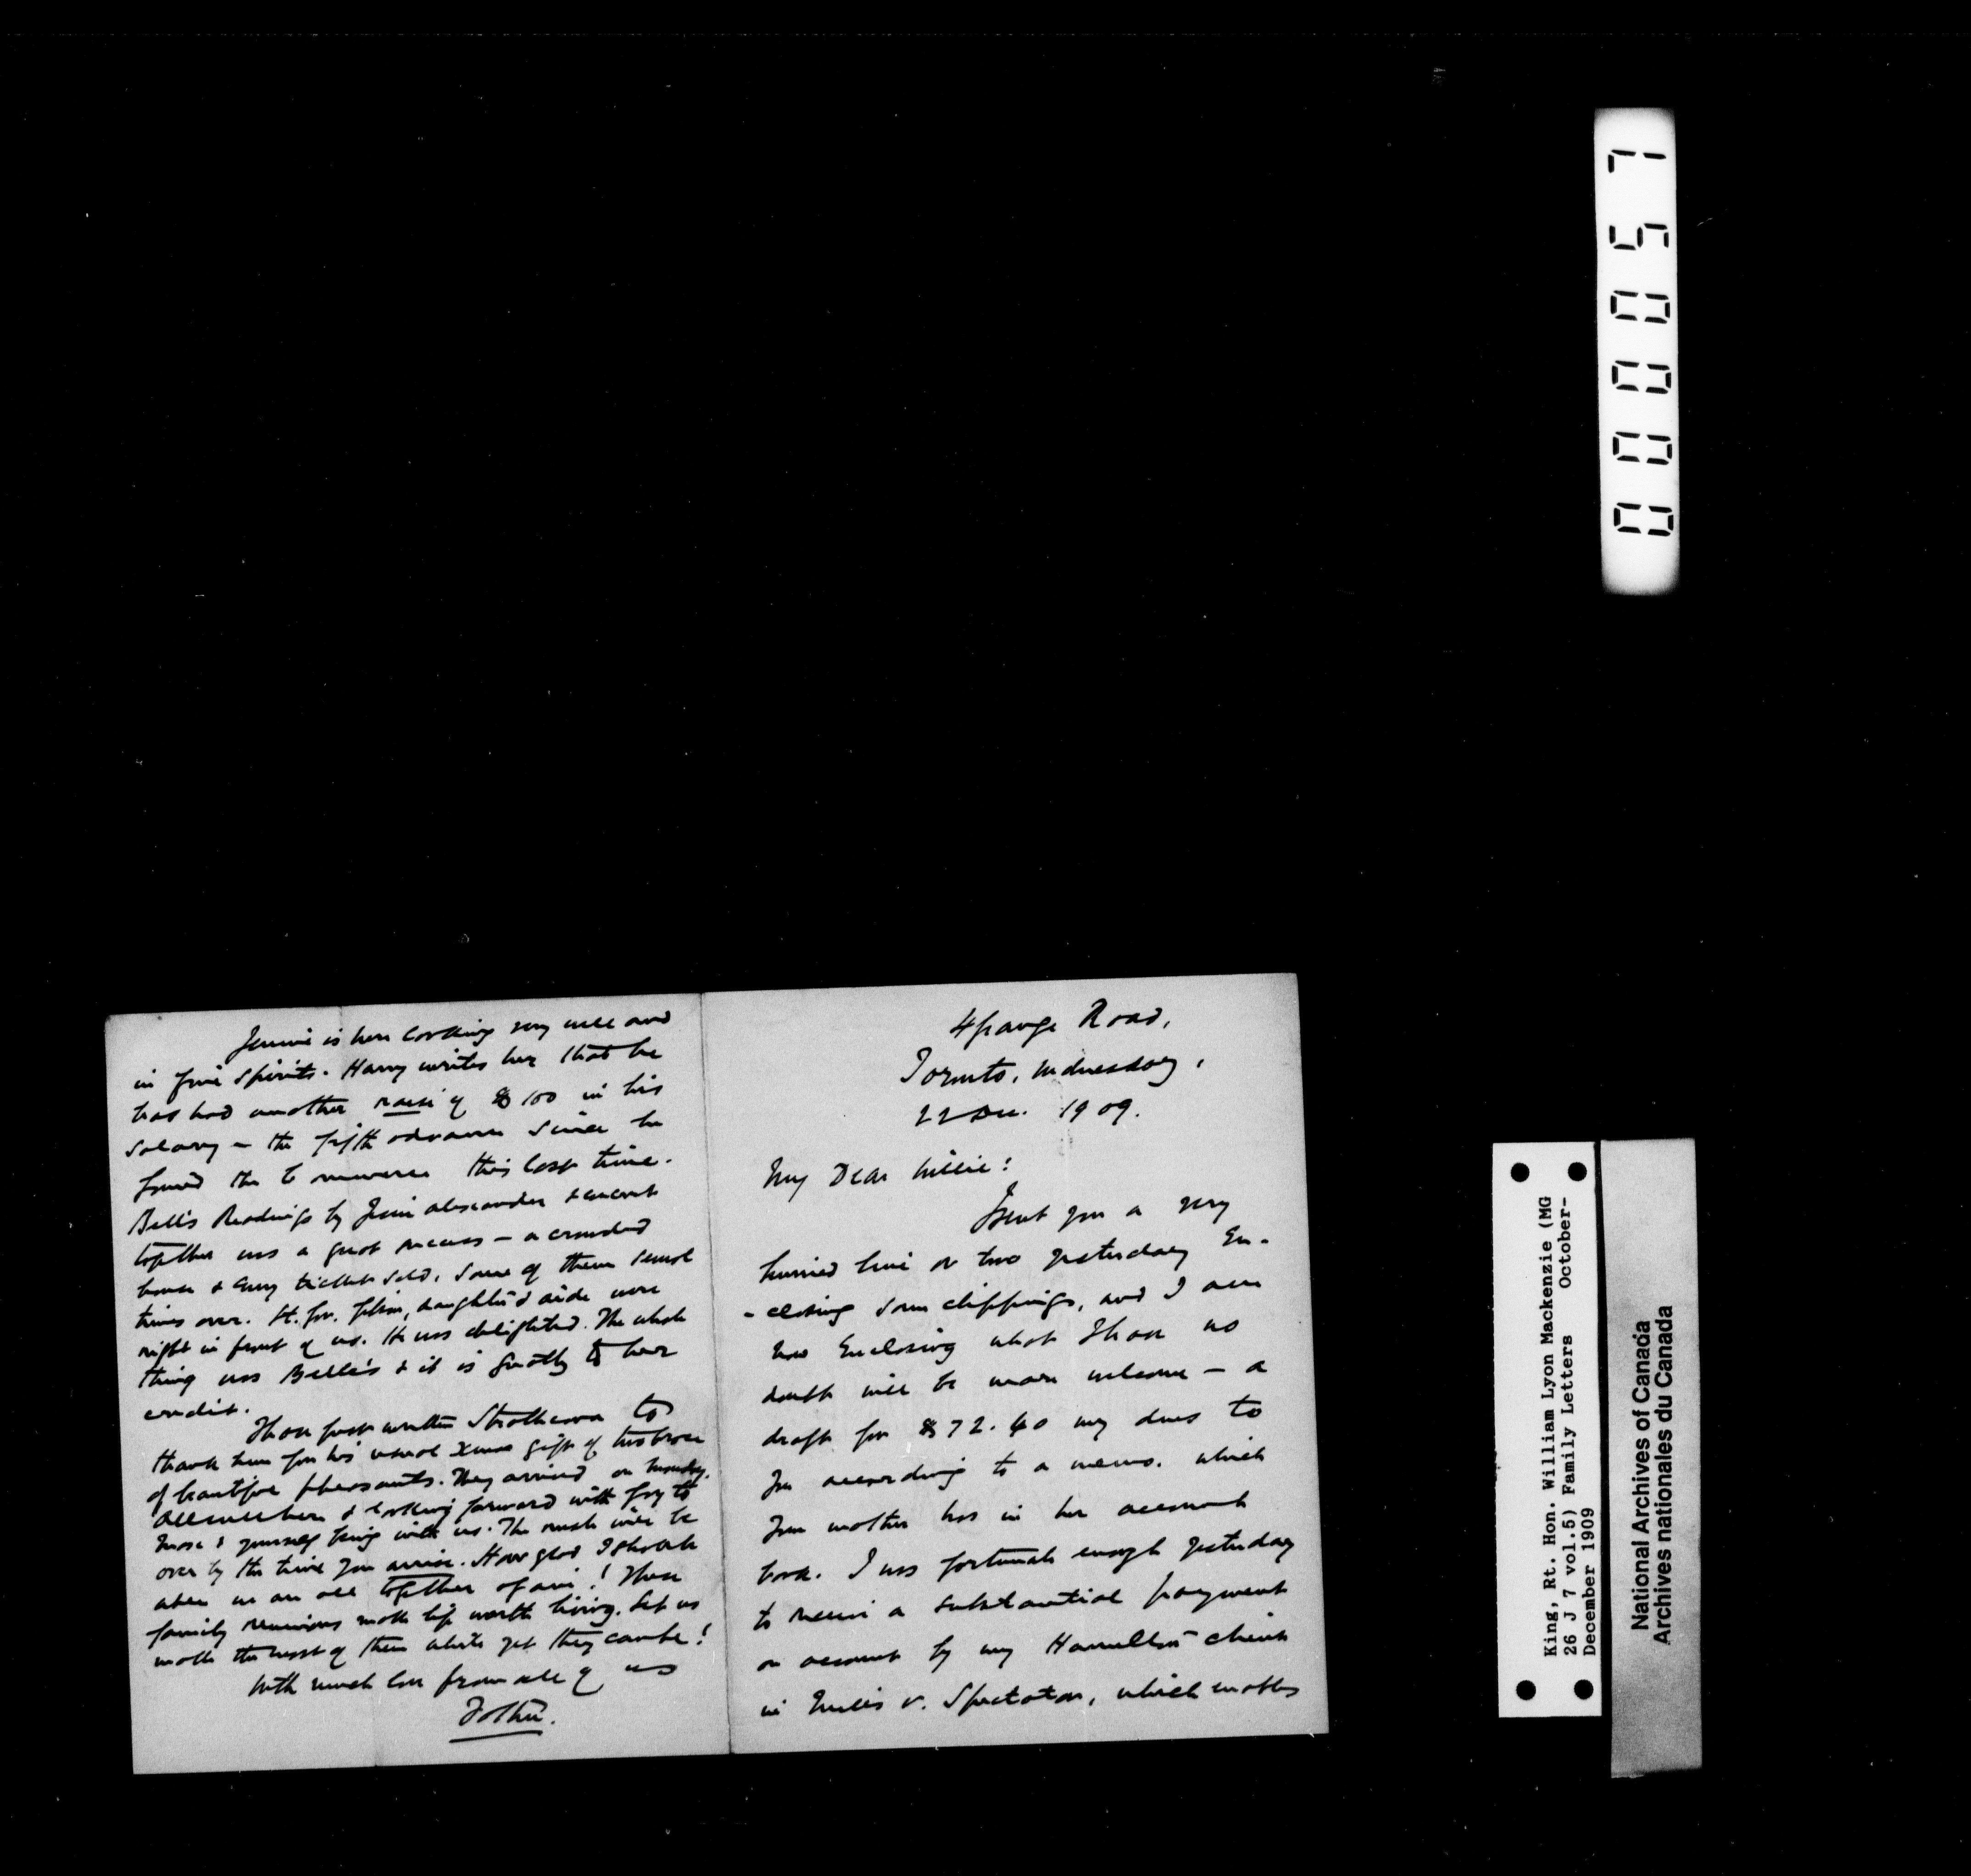 4 Grange Road,
Toronto, Wednesday,
22 Dec. 1909.
My Dear Willie:
I sent you a very
hurried line or two yesterday en-
-closing some clippings, and I am
now enclosing what I hope no
doubt will be more welcome – a
draft for $72.40 my dues to
you according to a memo. which
your mother has in her account
book. I was fortunate enough yesterday
to receive a substantial payment
on account by my Hamilton client
in v. Spectator, which enables
Jennie is here looking very well and
in fine spirits. Harry writes her that he
has had another raise of $100 in his
salary – the fifth advance since he
joined the this last time.
Bell's Readings by Jean Alexander & concert
together was a great success – a crowded
house & every ticket sold, some of them several
times over. Lt. Gov. Gibson, daughter & aide were
right in front of us. He was delighted. The whole
thing was Belle's & it is greatly to her
credit.
I have just written Strathcona to
thank him for his usual Xmas gift of two brace
of beautiful pheasants. They arrived on Monday.
All well here & looking forward with joy to
& yourself being with us. The rush will be
over by the time you arrive. How glad I shall be
when we are all together again! These
family reunions make life worth living. Let us
make the most of them while yet they can be!
With much love from all of us
Father.
000057
King, Rt. Hon. William Lyon Mackenzie (MG
26 J 7 vol.5) Family Letters October-
December 1909
National Archives of Canada
Archives nationales du Canada